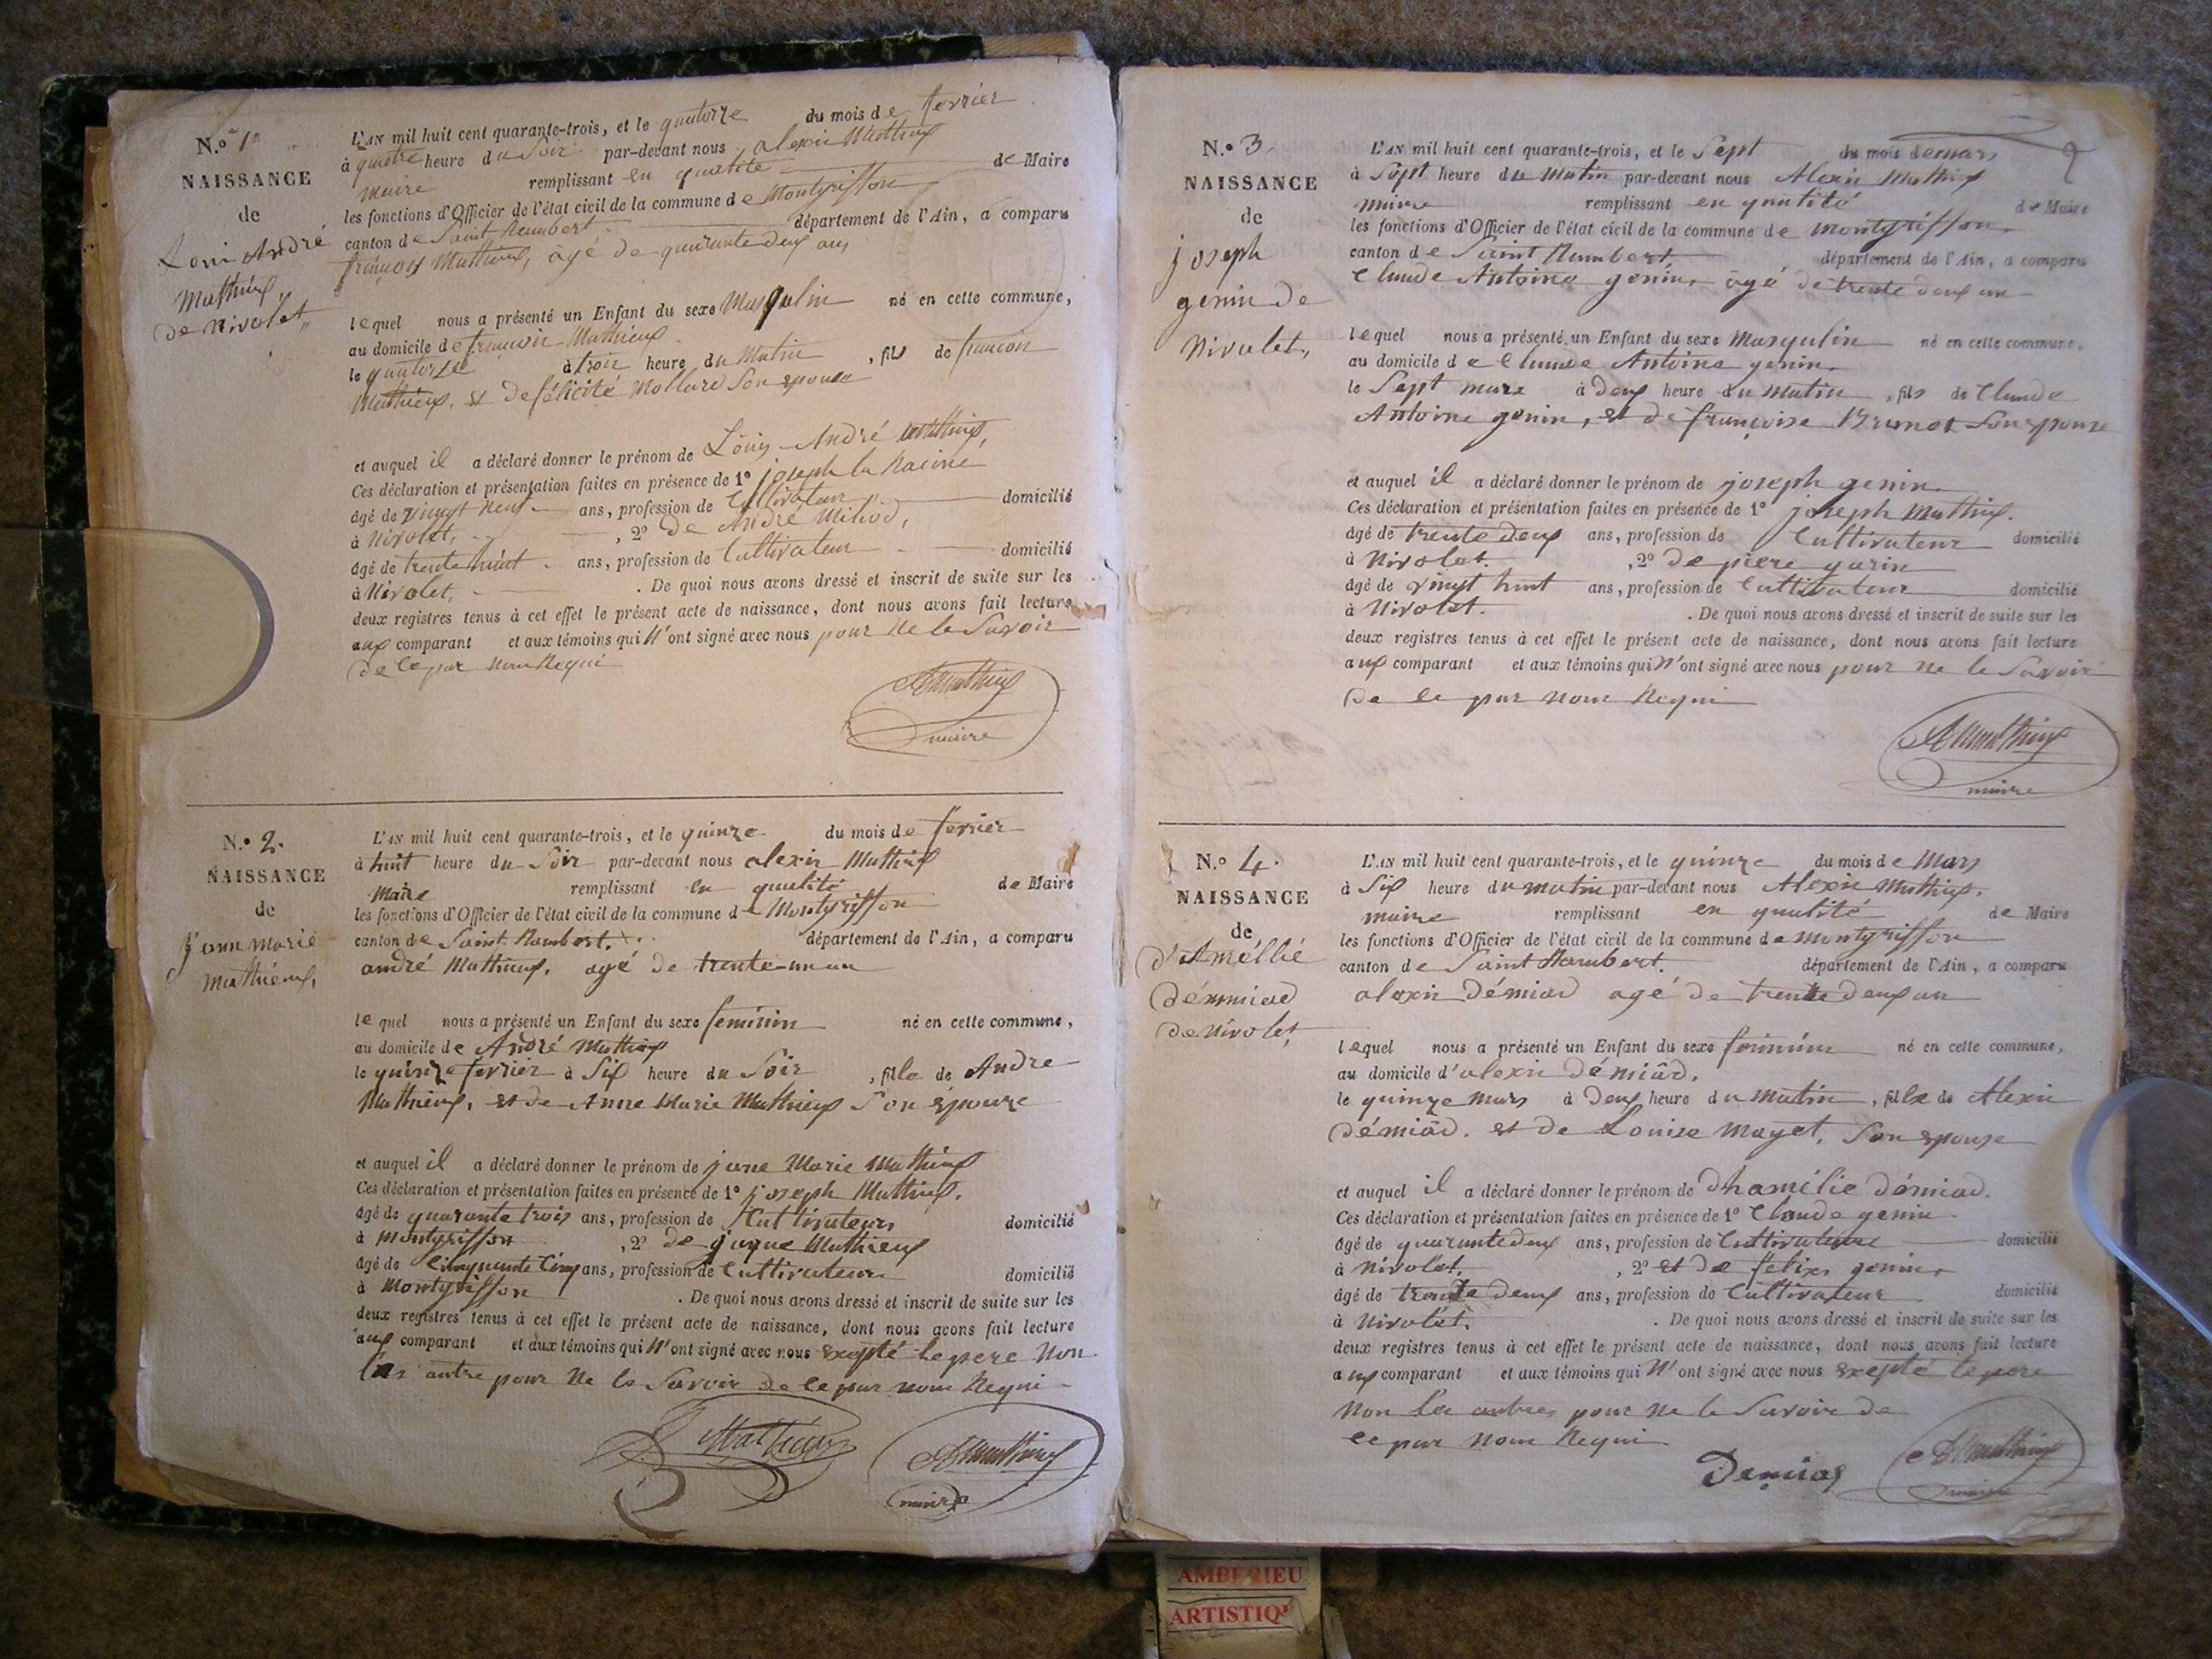 N.º 1er
NAISSANCE
de
Loui André
Mathieux
de Nivolet
L'AN mil huit cent quarante-trois, et le quatorze du mois de fevrier
à quatre heure du Soir par-devant nous alexis Mathieux
maire remplissant en qualité de Maire
les fonctions d'Officier de l'état civil de la commune de Montgriffon
canton de Saint Rambert département de l'Ain, a comparu
françois Mathieux, âgé de quarante deux ans
lequel nous a présenté un Enfant du sexe Masqulin né en cette commune,
au domicile de francois Mathieux
le quatorze à trois heure du Matin , fils de francois
Mathieux, et de félicité Mollard Son epouse
et auquel il a déclaré donner le prénom de Louis André Mathieux,
Ces déclaration et présentation faites en présence de 1º joseph la Racine
âgé de vingt neuf ans, profession de Cultivateur domicilié
à Nivolet, , 2º de André Milliod,
âgé de trente huit ans, profession de Cultivateur domicilié
à Nivolet, . De quoi nous avons dressé et inscrit de suite sur les
deux registres tenus à cet effet le présent acte de naissance, dont nous avons fait lecture
aux comparant et aux témoins qui N'ont signé avec nous pour Ne le Savoir
de ce par nous Requi
AMathieux
maire
N.º 2.
NAISSANCE
de
Jeanne marie
Mathieux,
L'AN mil huit cent quarante-trois, et le quinze du mois de fevrier
à huit heure du Soir par-devant nous alexis Mathieux
Maire remplissant en qualité de Maire
les fonctions d'Officier de l'état civil de la commune de Montgriffon
canton de Saint Rambert. département de l'Ain, a comparu
andré Mathieux, agé de trente-un an
lequel nous a présenté un Enfant du sexe feminin né en cette commune,
au domicile de André Mathieux
le quinze fevrier à Six heure du Soir , fille de Andre
Mathieux, et de Anne Marie Mathieux Son épouze
et auquel il a déclaré donner le prénom de jane Marie Mathieux
Ces déclaration et présentation faites en présence de 1º joseph Mathieux,
âgé de quarante trois ans, profession de Cultivateur domicilié
à montgriffon , 2º de jaque Mathieux
âgé de Cinquante Cinq ans, profession de Cultivateur domicilié
à Montgriffon . De quoi nous avons dressé et inscrit de suite sur les
deux registres tenus à cet effet le présent acte de naissance, dont nous avons fait lecture
aux comparant et aux témoins qui N'ont signé avec nous exepté le pere Non
les autre pour Ne le Savoir de ce par nous Requi
Mathieux AMathieux
maire
N.º 3.
NAISSANCE
de
joseph
genin de
Nivolet,
L'AN mil huit cent quarante-trois, et le Sept du mois de mars
à Sept heure du Matin par-devant nous Alexis Mathieux
maire remplissant en qualité de Maire
les fonctions d'Officier de l'état civil de la commune de montgriffon.
canton de Saint Rambert département de l'Ain, a comparu
Claude Antoine genin, âgé de trente deux an
lequel nous a présenté un Enfant du sexe Masqulin né en cette commune,
au domicile de Claude Antoine genin.
le Sept mars à deux heure du Matin , fils de Claude
Antoine genin, et de françoise Brunet Son epouse
et auquel il a déclaré donner le prénom de joseph genin.
Ces déclaration et présentation faites en présence de 1º joseph Mathieux.
âgé de trente deux ans, profession de Cultivateur domicilié
à Nivolet. , 2º de piere garin
âgé de vingt huit ans, profession de Cultivateur domicilié
à Nivolet. . De quoi nous avons dressé et inscrit de suite sur les
deux registres tenus à cet effet le présent acte de naissance, dont nous avons fait lecture
aux comparant et aux témoins qui N'ont signé avec nous pour Ne le Savoir
de ce par Nous Requi
AMathieux
maire
N.º 4.
NAISSANCE
de
d'Améllié
démiad
de Nivolet,
L'AN mil huit cent quarante-trois, et le quinze du mois de Mars
à Six heure du matin par-devant nous Alexis Mathieux.
maire remplissant en qualité de Maire
les fonctions d'Officier de l'état civil de la commune de montgriffon
canton de Saint Rambert. département de l'Ain, a comparu
alexis Démiad agé de trente deux an
lequel nous a présenté un Enfant du sexe feminin né en cette commune,
au domicile d'alexis démiad.
le quinze mars à deux heure du Matin , fille de Alexis
démiad. et de Louise Mayet, Son epouse
et auquel il a déclaré donner le prénom de Dhamélie démiad.
Ces déclaration et présentation faites en présence de 1º Claude genin
âgé de quarante deux ans, profession de Cultivateur domicilié
à Nivolet. , 2º et de félix genin,
âgé de trente deux ans, profession de Cultivateur domicilié
à Nivolet. . De quoi nous avons dressé et inscrit de suite sur les
deux registres tenus à cet effet le présent acte de naissance, dont nous avons fait lecture
aux comparant et aux témoins qui N'ont signé avec nous exepté le pere
Non les autres pour Ne le Savoir de
ce par nous Requi
Demias AMathieux
maire
AMBERIEU
ARTISTIQU